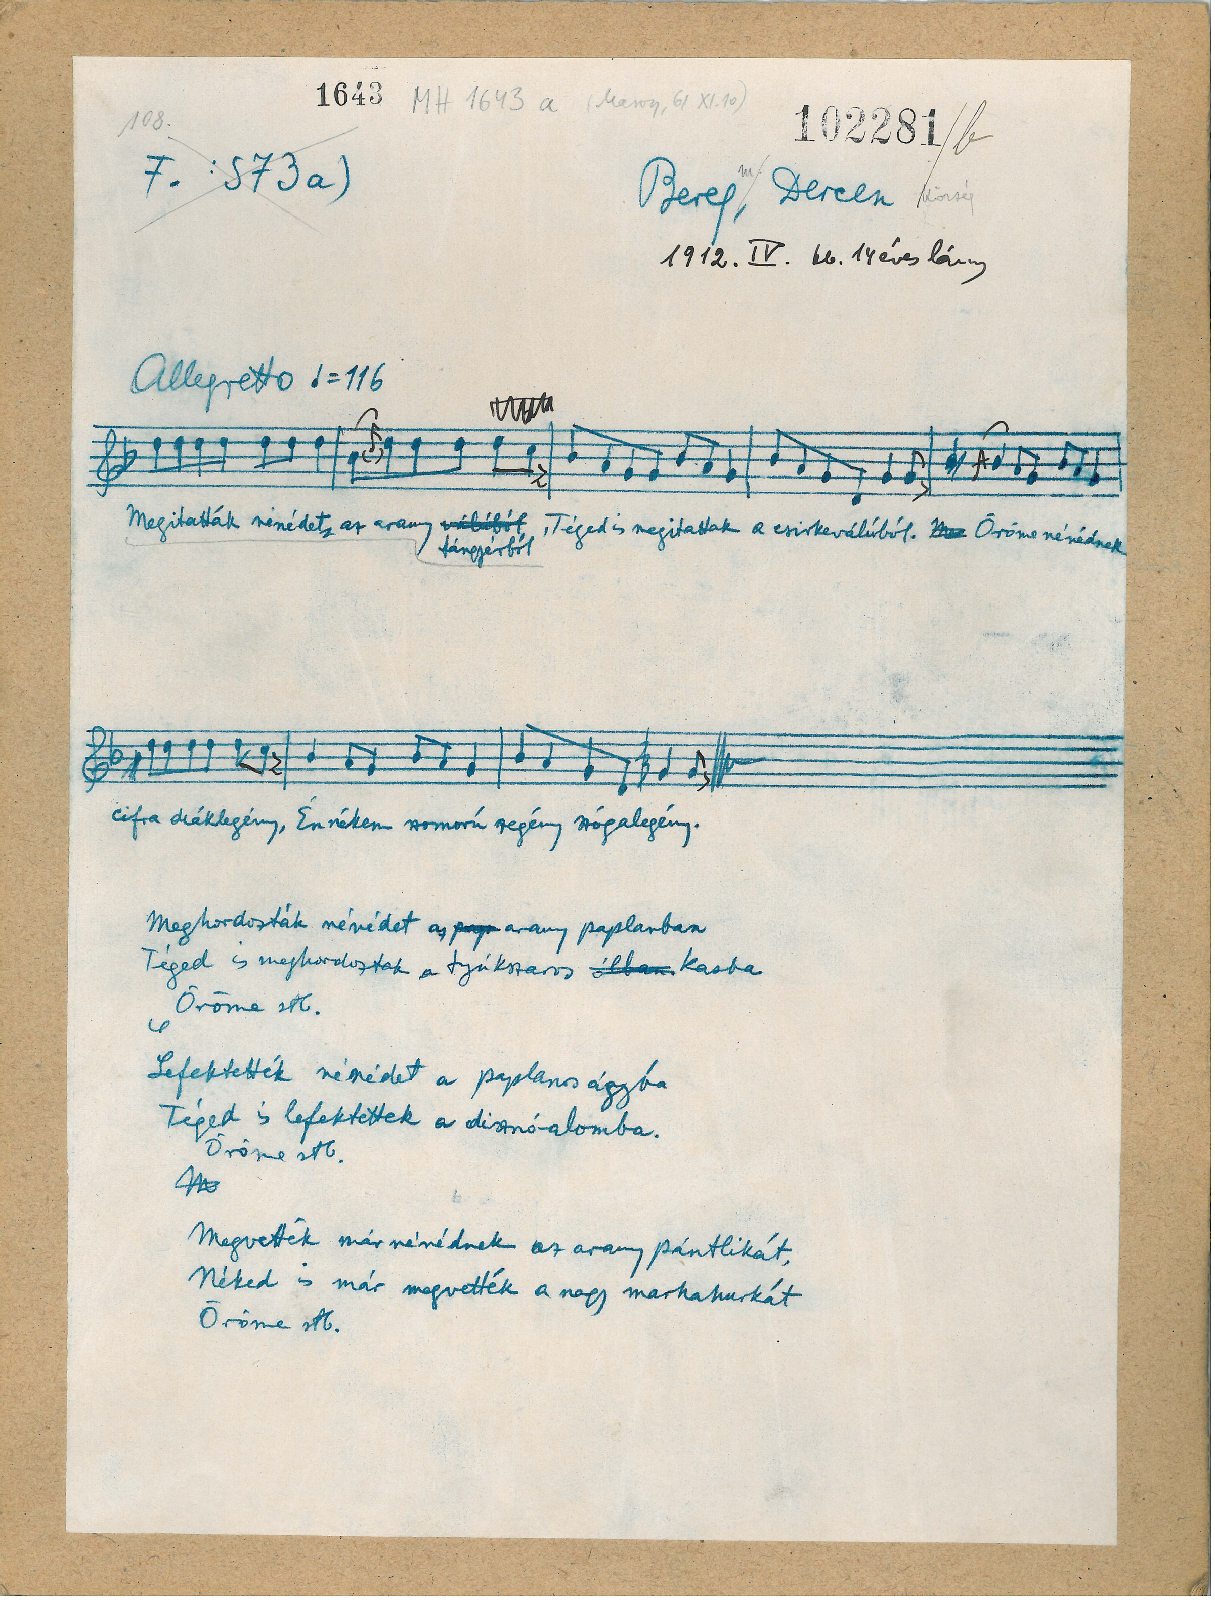 1643 MH 1643 a
108.
102281/b
F. : 573a)
Bereg, m/ Dercen község
1912. IV. kb. 14 éves lány
Allegretto ♩=116
Megitatták nénédet, az arany válúból, Téged is megitattak a csirkeválúból. Öröme nénédnek
tángyérból
cifra diáklegény, Énnékem szomorú szegény szógalegény.
Meghordozták nénédet az arany paplanban
Téged is meghordoztak a tyúkszaros ólban kasba
Öröme stb.
Lefektették nénédet a paplanos ágyba
Téged is lefektettek a disznó-alomba.
Öröme stb.
Megvették már nénédnek az arany pántlikát,
Néked is már megvették a nagy marhahurkát
Öröme stb.